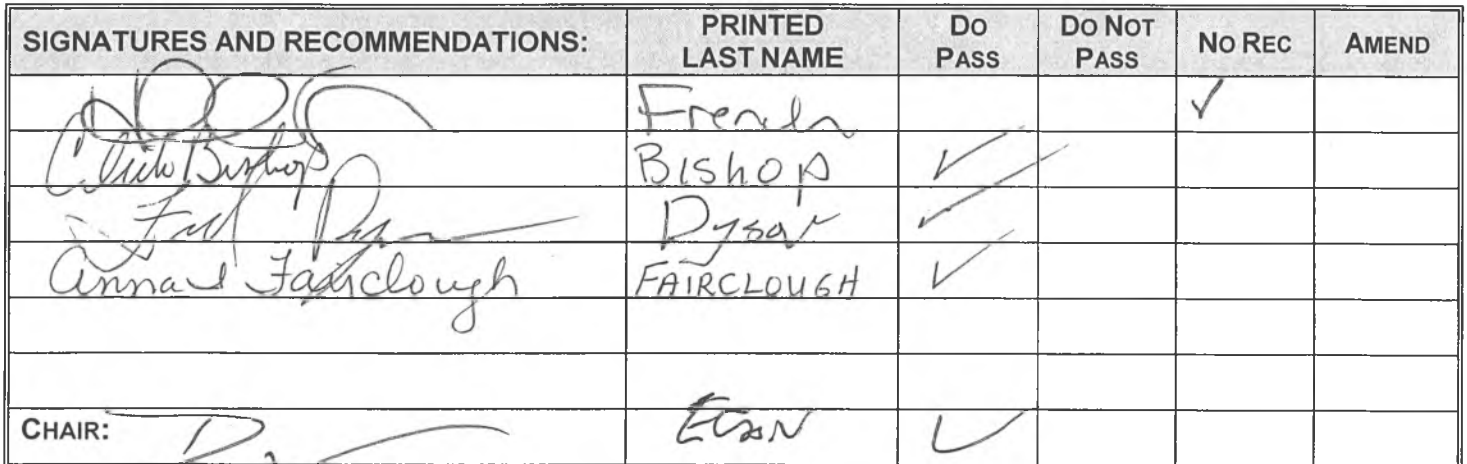 SIGNATURES AND RECOMMENDATIONS: PRINTED LAST NAME DO PASS DO NOT PASS NO REC AMEND
French ✓
Bishop Bishop ✓
Dyson ✓
Anna Fairclough FAIRCLOUGH ✓
CHAIR: Egan ✓